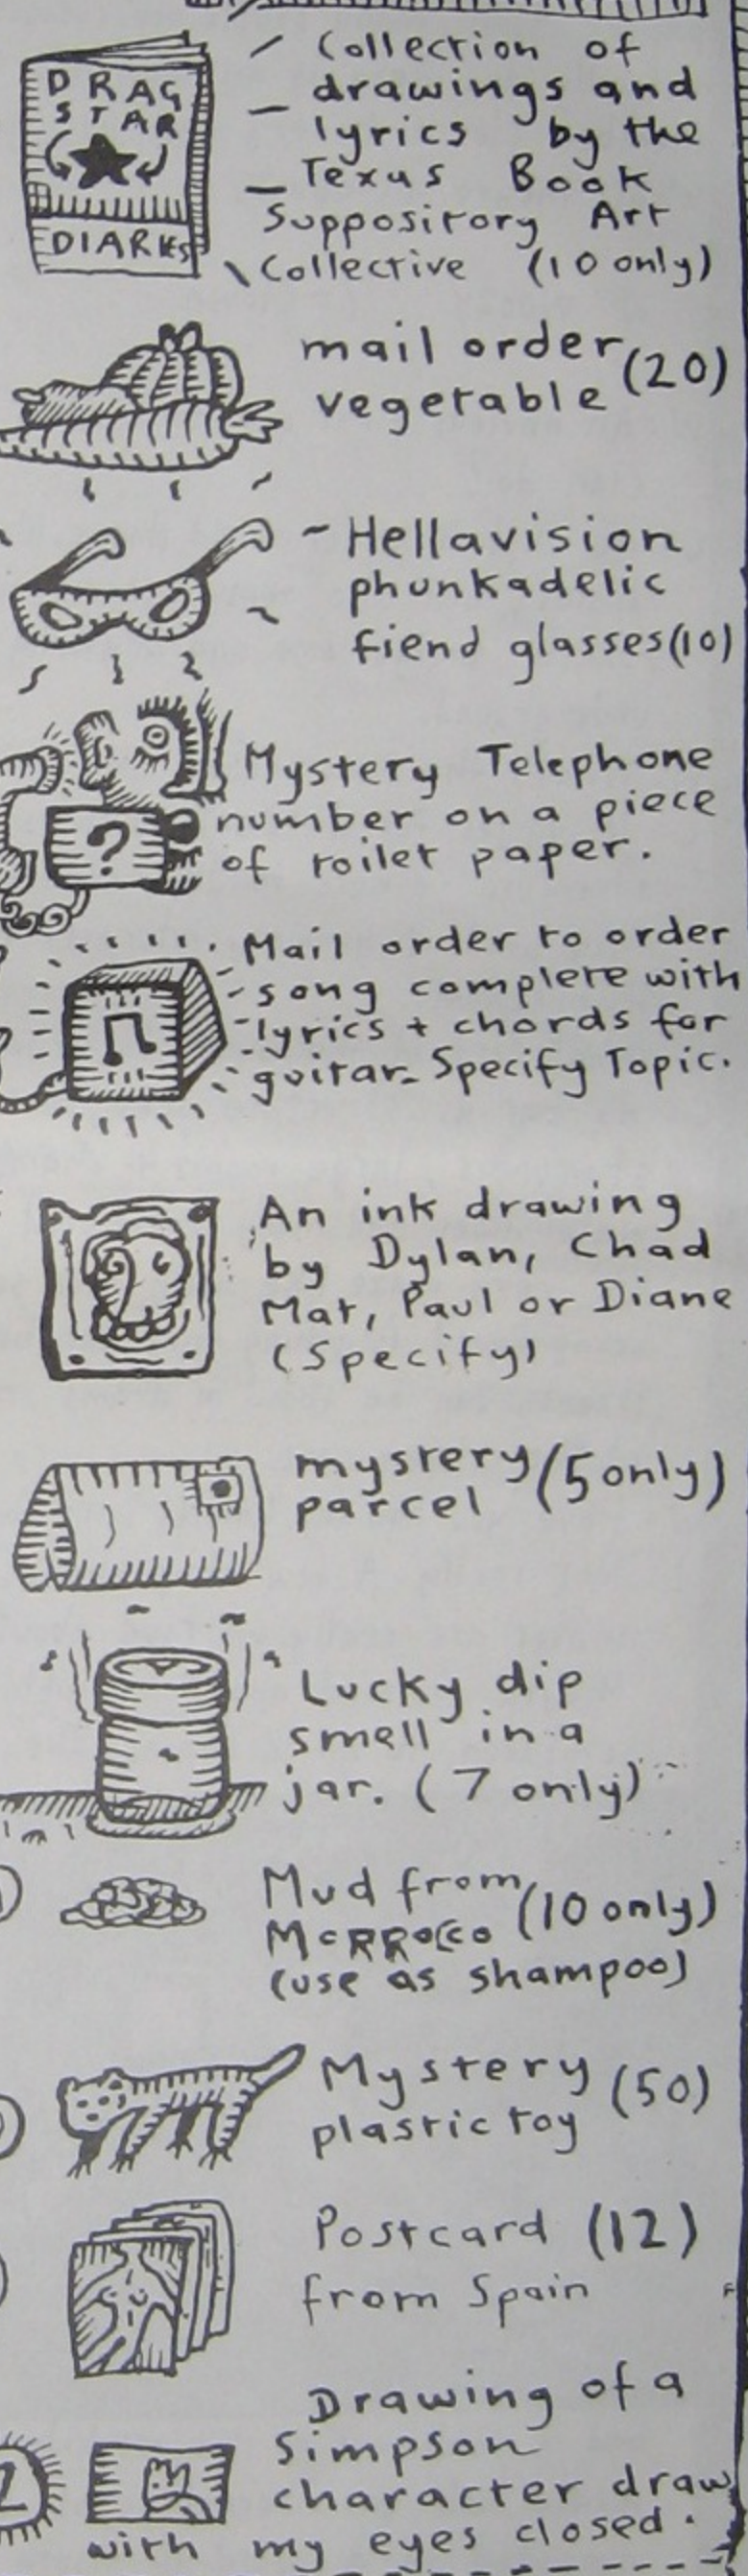 DRAG
STAR
DIARIES
Collection of
drawings and
lyrics by the
Texus Book
Suppository Art
Collective (10 only)
mail order (20)
vegetable
Hellavision
phunkadelic
fiend glasses (10)
Mystery Telephone
number on a piece
of toilet paper.
?
Mail order to order
song complete with
lyrics + chords for
guitar. Specify Topic.
An ink drawing
by Dylan, Chad
Mat, Paul or Diane
(Specify)
mystery (5 only)
parcel
Lucky dip
smell in a
jar. (7 only)
Mud from (10 only)
MoRRocco
(use as shampoo)
Mystery (50)
plastic toy
Postcard (12)
from Spain
Drawing of a
Simpson
character draw
with my eyes closed.